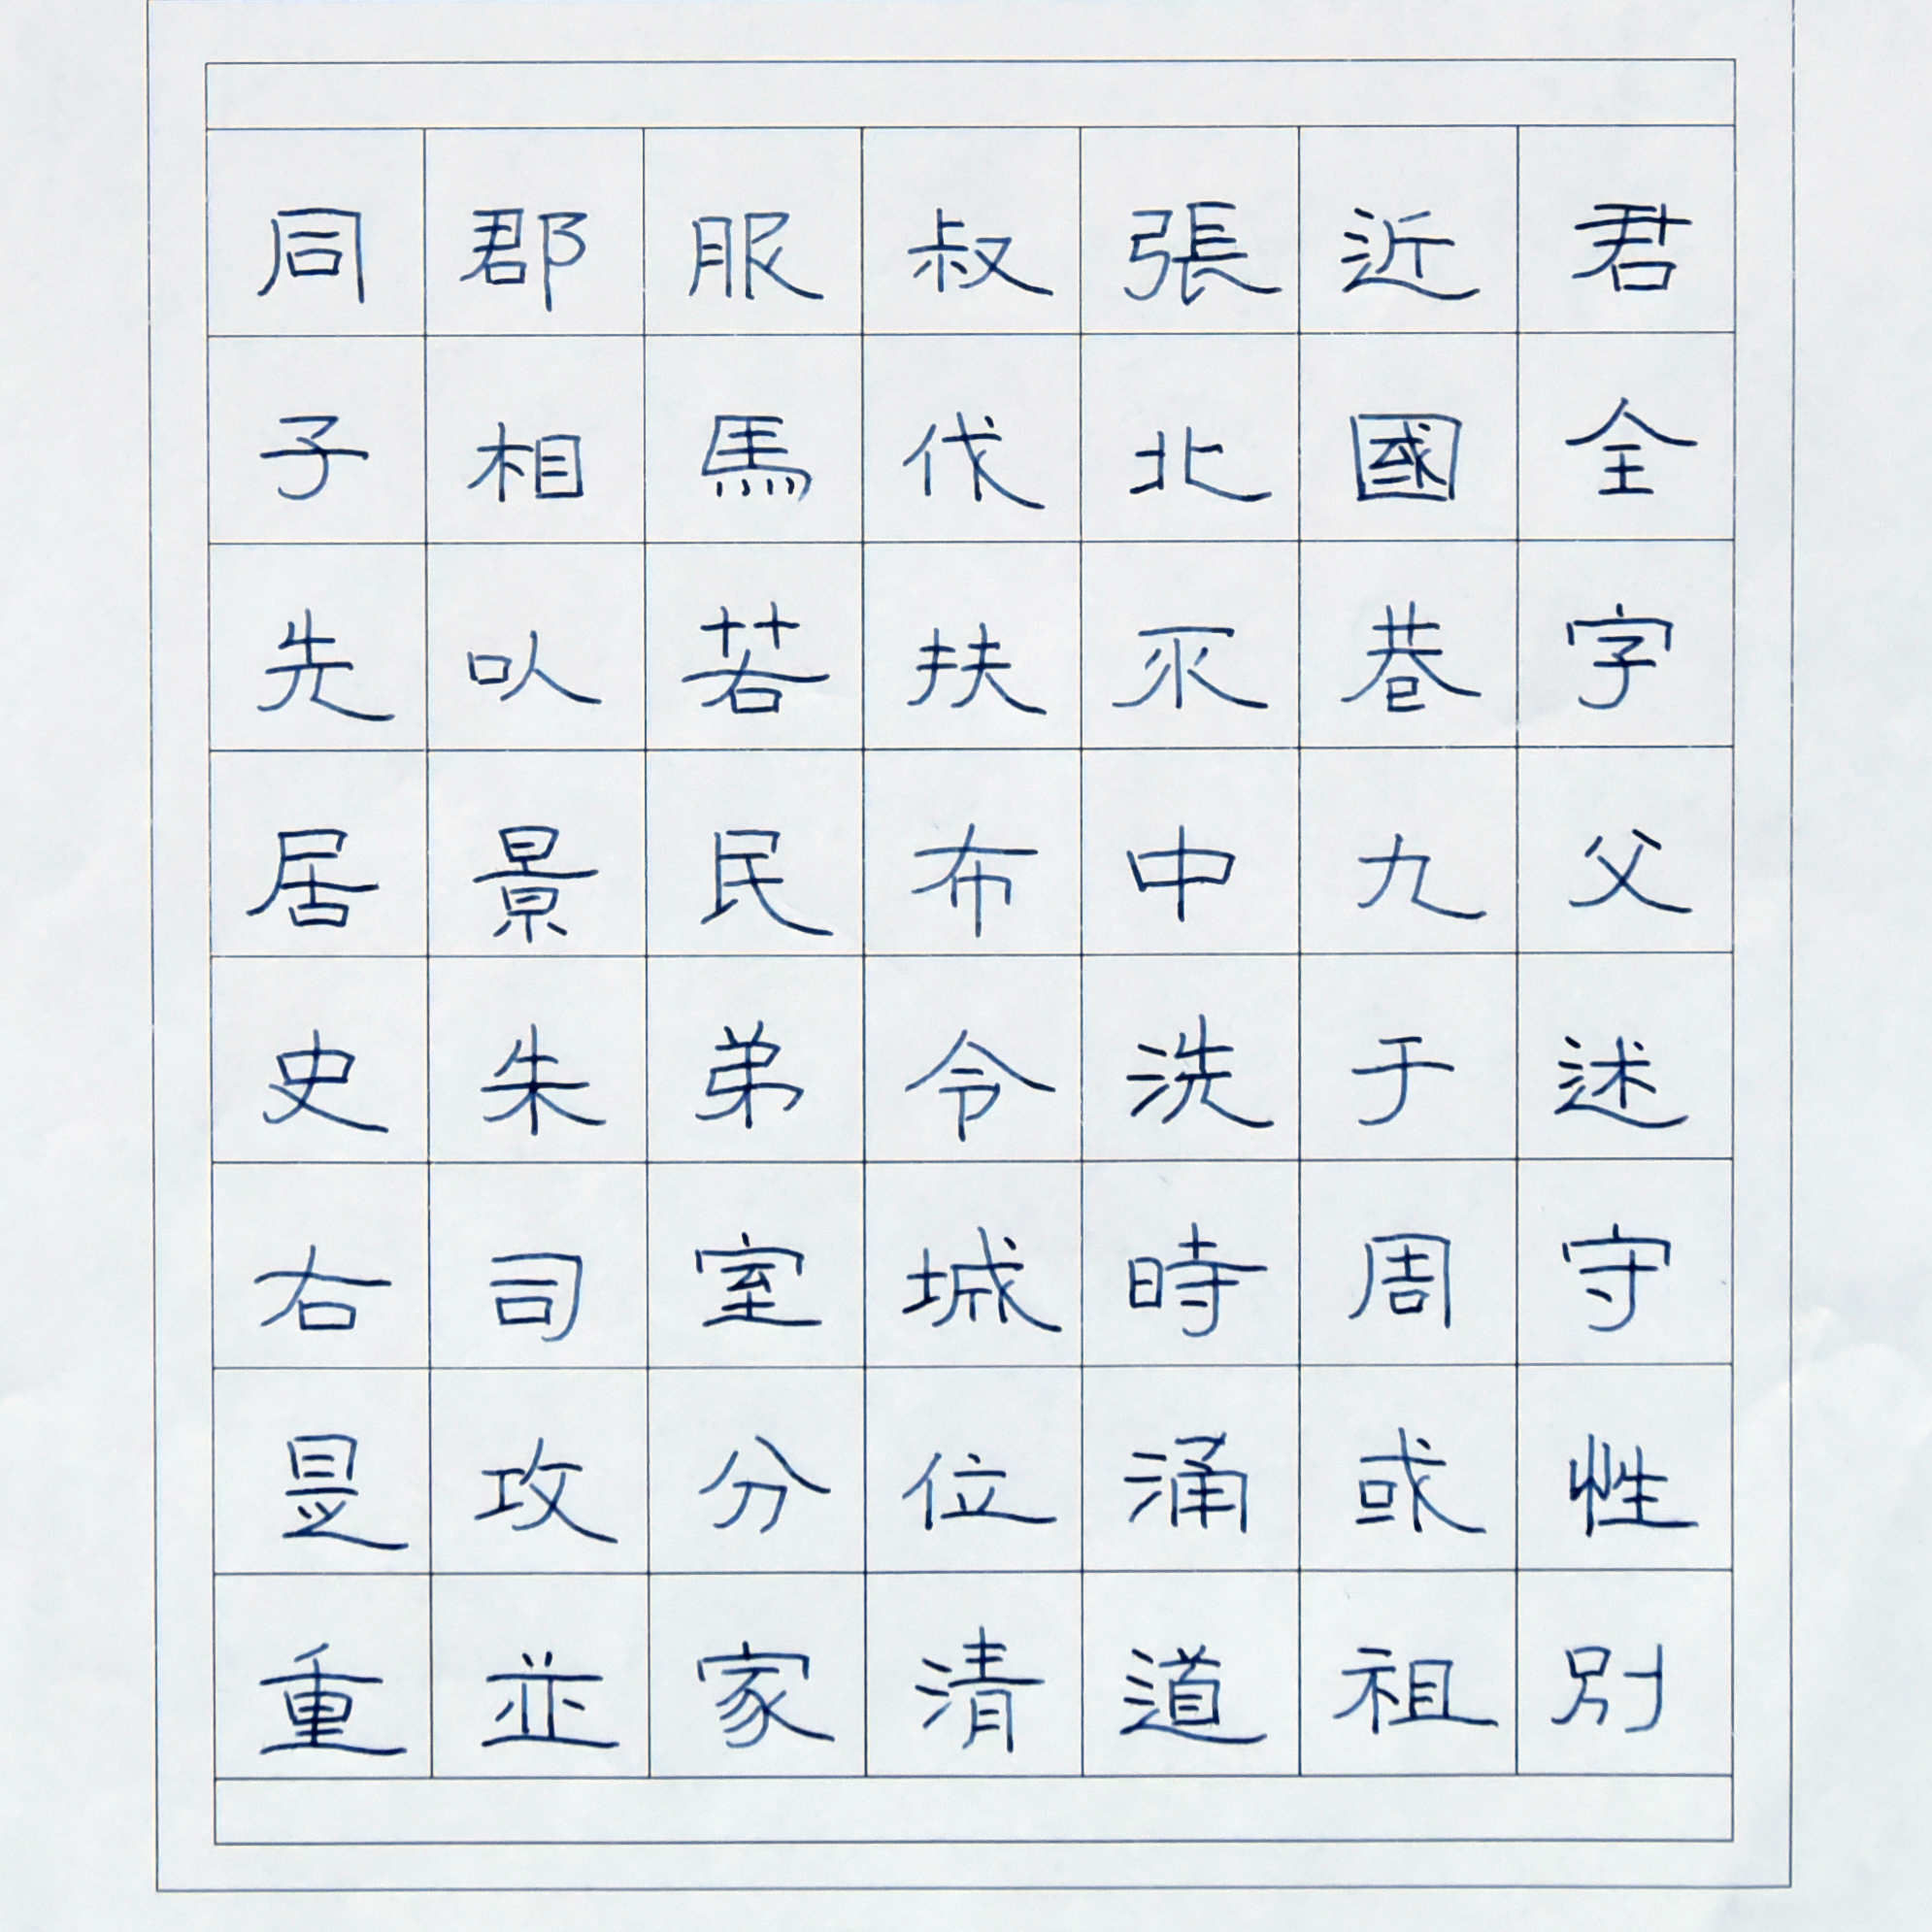 君全字父述守性別
近國巷九于周或祖
張北中洗時涌道
叔伐扶布令城位清
服馬若民弟室分家
郡相㕥景朱司攻並
同子先居史右是重